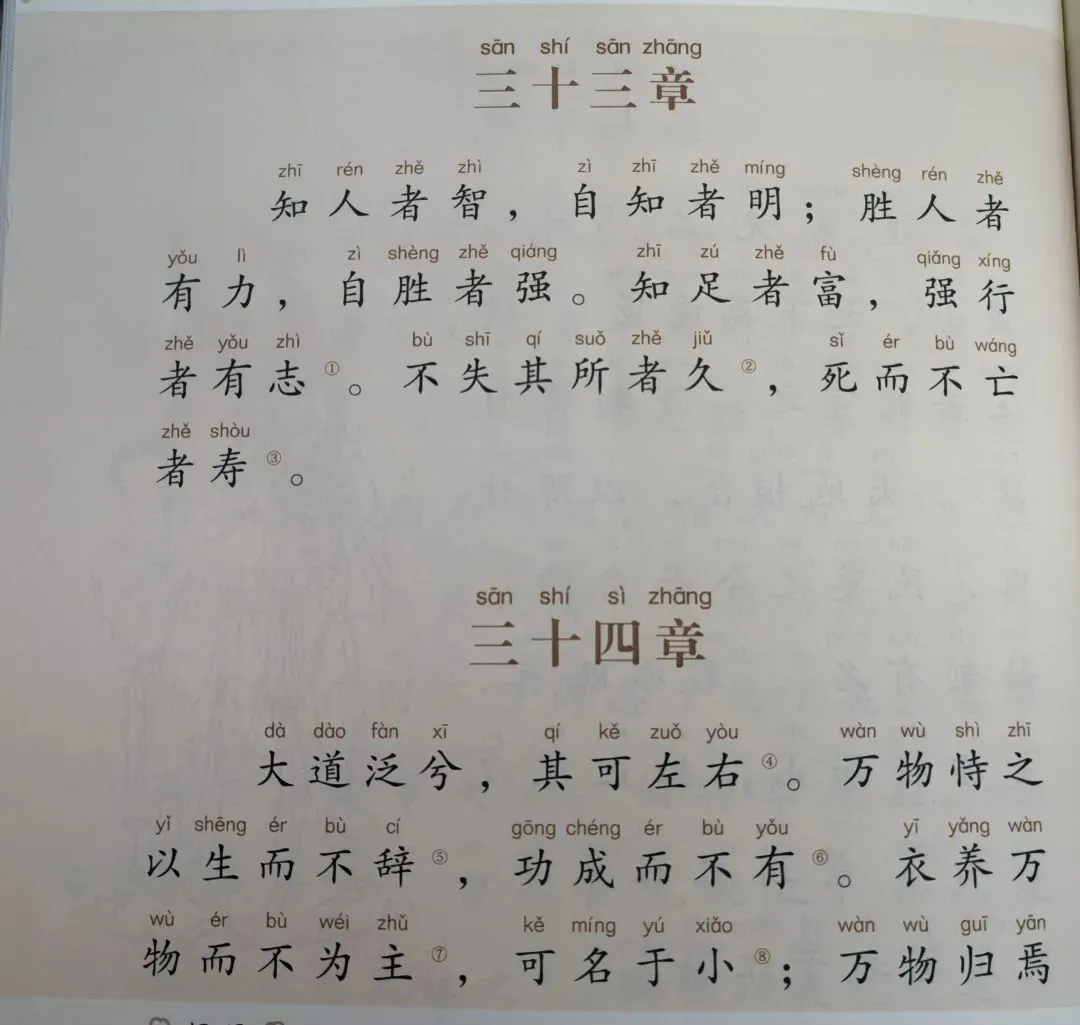 sān shí sān zhāng
三十三章
zhī rén zhě zhì zì zhī zhě míng shèng rén zhě
知人者智，自知者明；胜人者
yǒu lì zì shèng zhě qiáng zhī zú zhě fù qiǎng xíng
有力，自胜者强。知足者富，强行
zhě yǒu zhì bù shī qí suǒ zhě jiǔ sǐ ér bù wáng
者有志①。不失其所者久②，死而不亡
zhě shòu
者寿③。
sān shí sì zhāng
三十四章
dà dào fàn xī qí kě zuǒ yòu wàn wù shì zhī
大道泛兮，其可左右④。万物恃之
yǐ shēng ér bù cí gōng chéng ér bù yǒu yī yǎng wàn
以生而不辞⑤，功成而不有⑥。衣养万
wù ér bù wéi zhǔ kě míng yú xiǎo wàn wù guī yān
物而不为主⑦，可名于小⑧；万物归焉